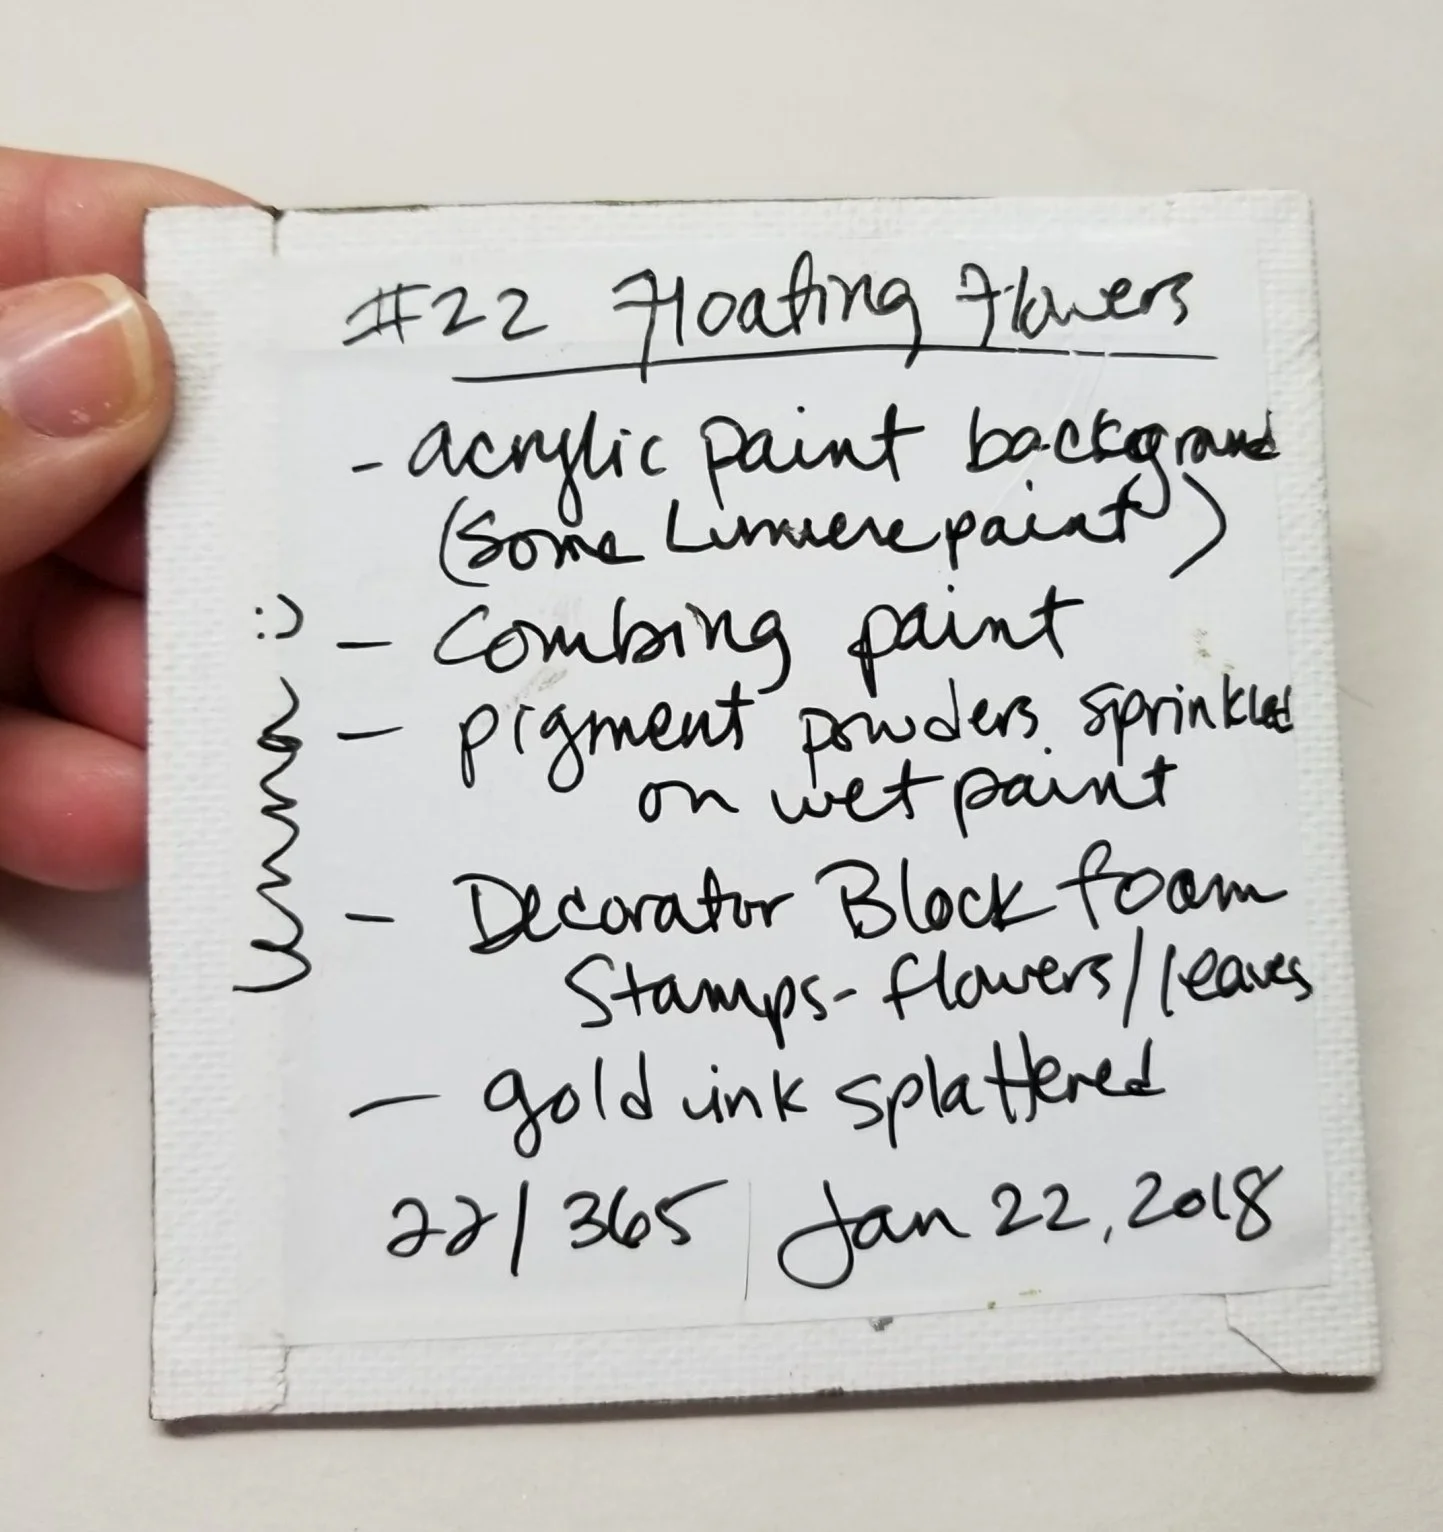 #22 Floating Flowers
- acrylic paint background
(some Lumiere paint)
- Combing paint
- pigment powders sprinkled
on wet paint
- Decorator Block foam
Stamps - flowers/leaves
- gold ink splattered
22/365 | Jan 22, 2018
:)